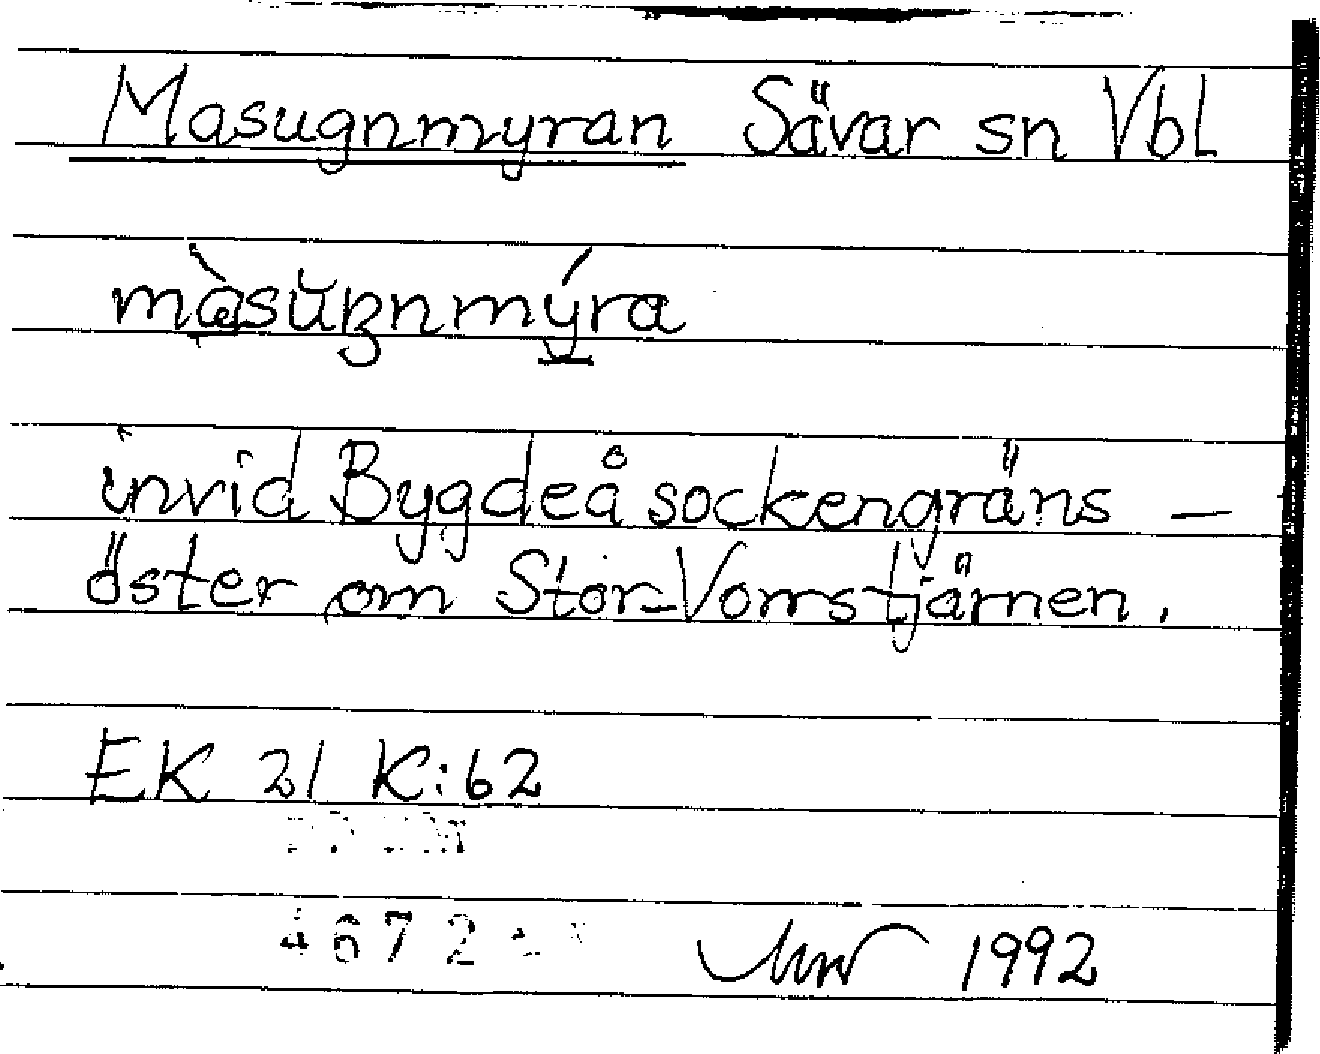 Masugnmyran Sävar sn Vbl
màsŭgnmýra
invid Bygdeå sockengräns –
öster om Stor-Vomstjärnen.
EK 21 K:62
4672
1992